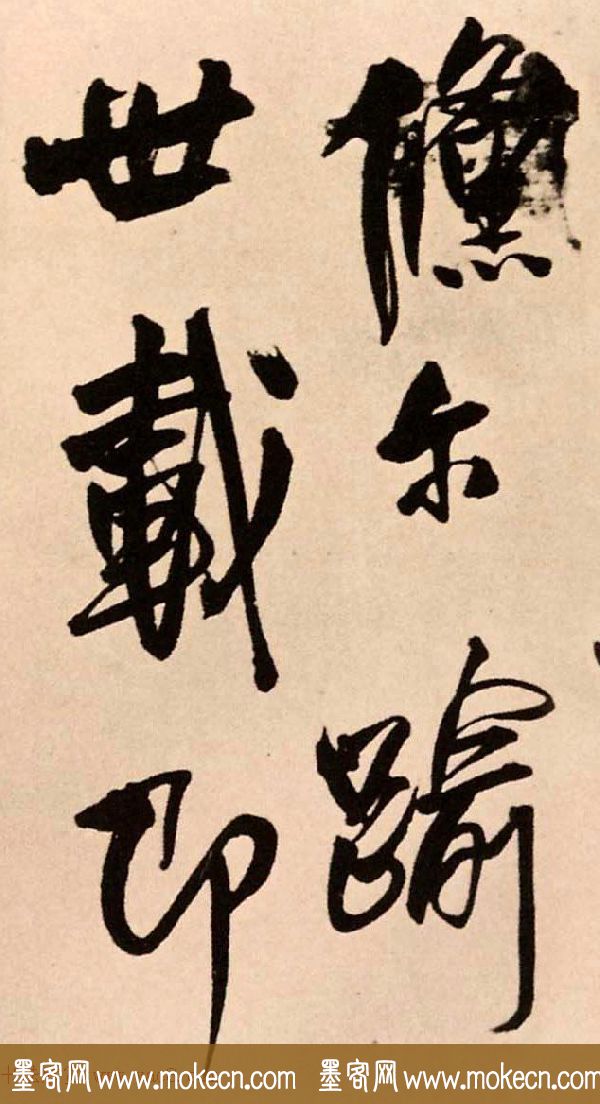 儵尔踰
世載即
墨客网 www.mokecn.com 墨客网 www.mokecn.com